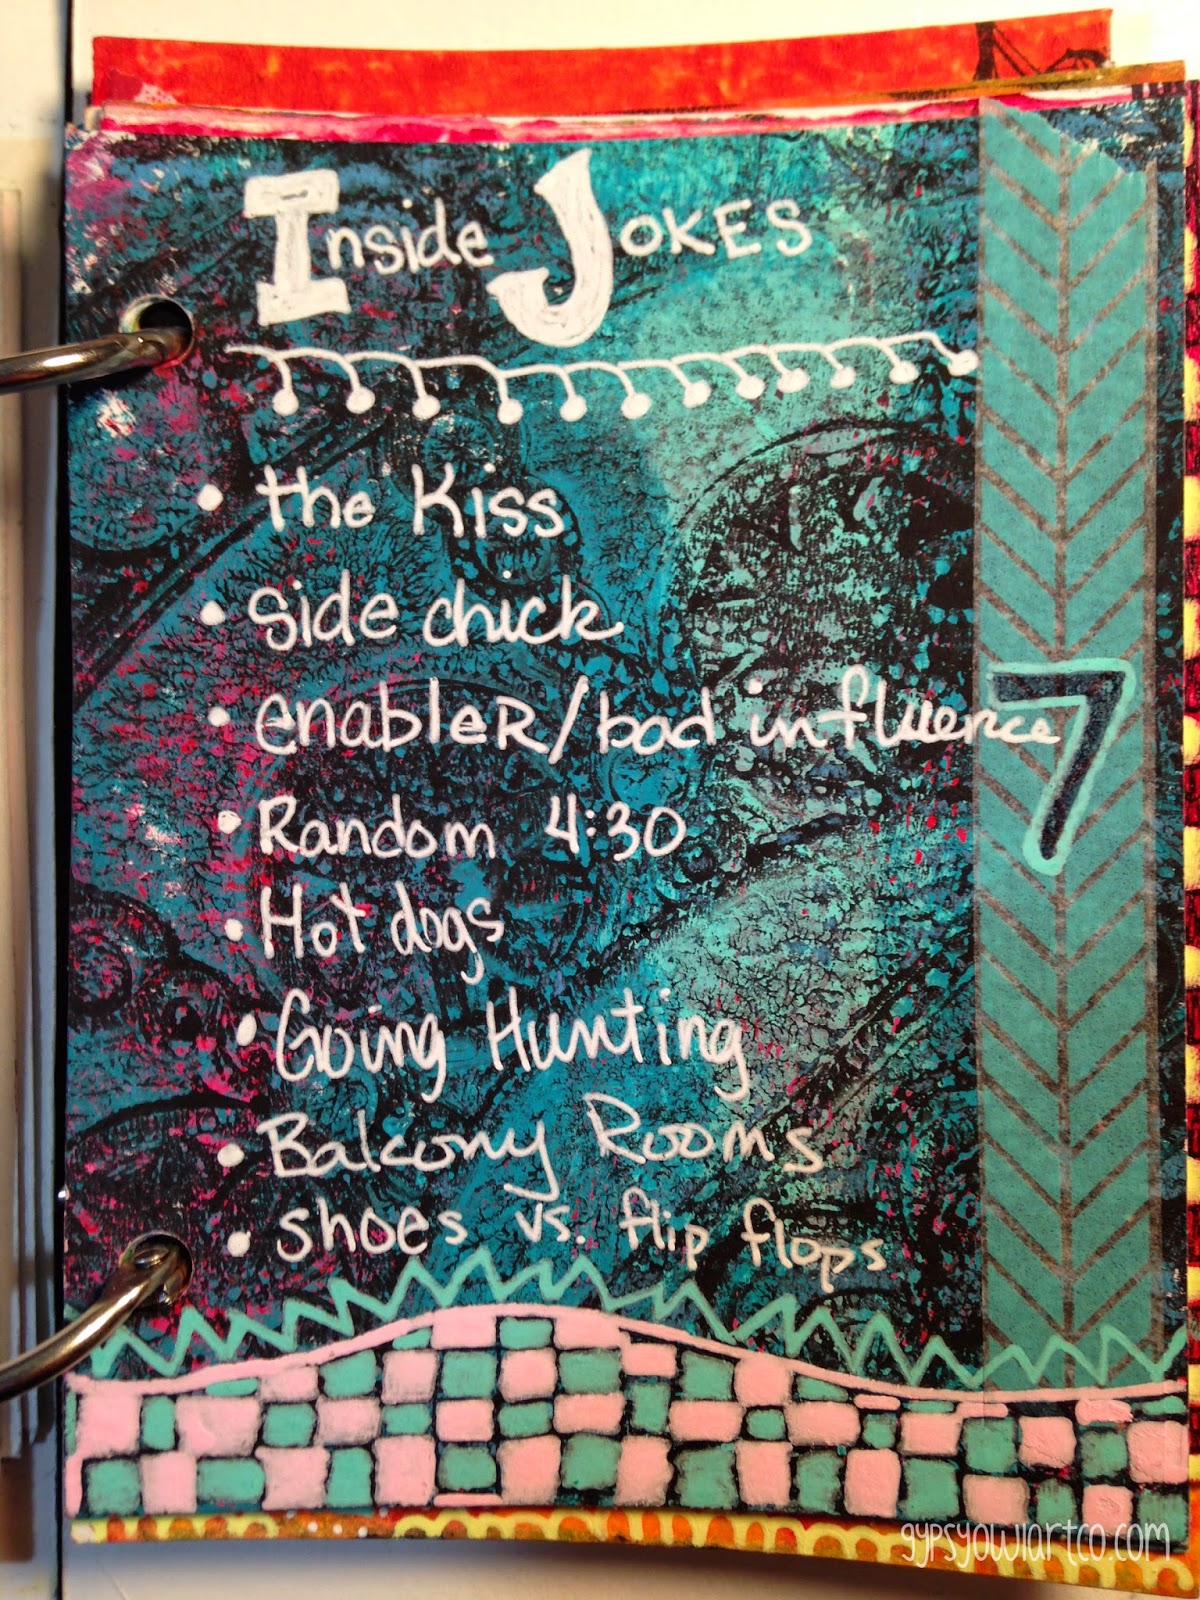 Inside Jokes
• the Kiss
• side chick
• enabler/bad influence
7
• Random 4:30
• Hot dogs
• Going Hunting
• Balcony Rooms
• shoes vs. flip flops
gypsyowlartco.com